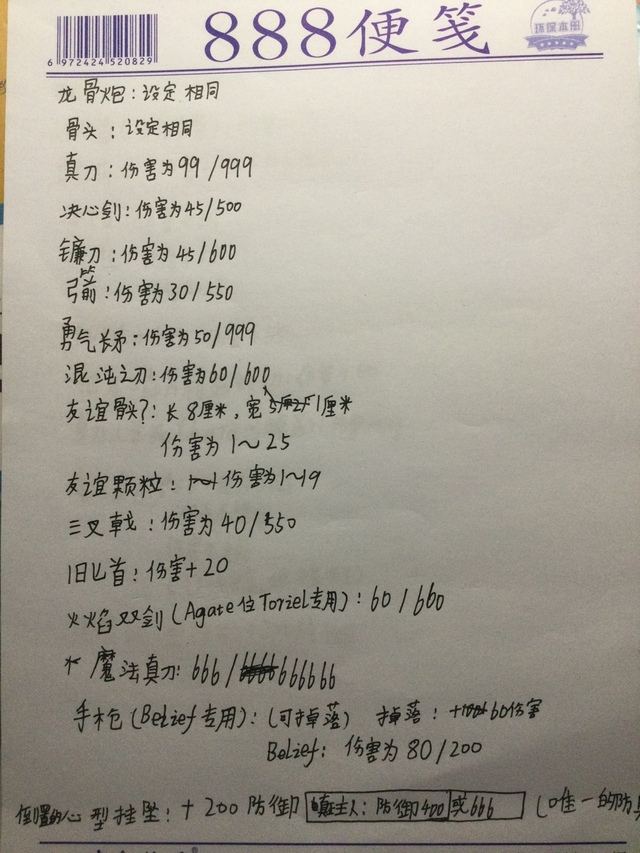 888便笺
环保本册
6 972424 520829
龙骨炮：设定相同
骨头：设定相同
真刀：伤害为99/999
决心剑：伤害为45/500
镰刀：伤害为45/600
弓箭：伤害为30/550
勇气长矛：伤害为50/999
混沌之刃：伤害为60/600
友谊骨头?：长8厘米，宽1厘米
伤害为1~25
友谊颗粒：伤害为1~19
三叉戟：伤害为40/550
旧匕首：伤害+20
火焰双剑（Agate位Toriel专用）：60/600
魔法真刀：666/666666
手枪（Belief专用）：（可掉落） 掉落：+60伤害
Belief：伤害为80/200
倒置的心型挂坠：+200防御 镇主人：防御400或666 （唯一的防具